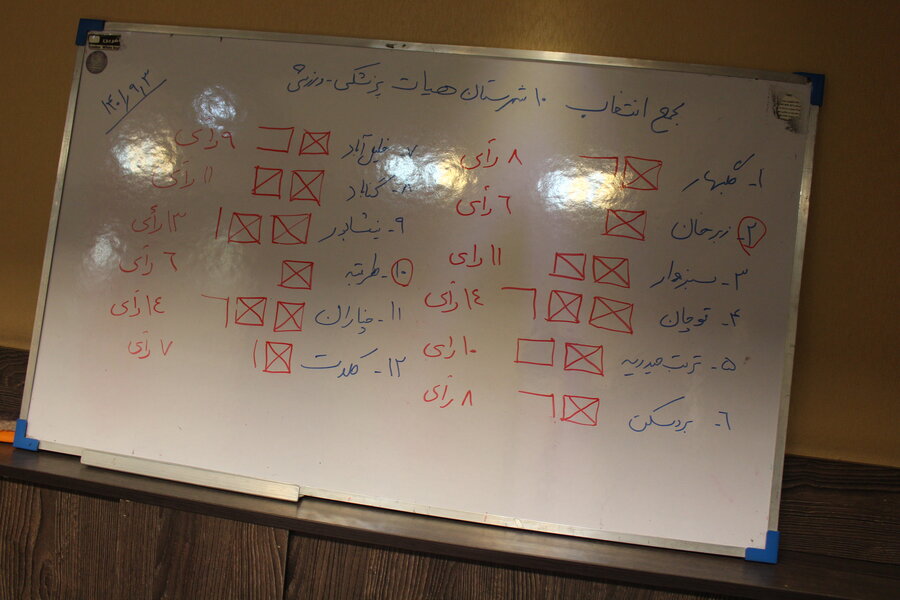 مجمع انتخاب ۱۰ شهرستان هیات پزشکی-ورزشی
۱۴۰۱/۹/۳
۱- گلبهار ۸ رأی
۲- زبرخان ۶ رأی
۳- سبزوار ۱۱ رای
۴- قوچان ۱٤ رأی
۵- تربت حیدریه ۱۰ رای
۶- بردسکن ۸ رأی
۷- خلیل آباد ۹ رأی
۸- گناباد ۱۱ رأی
۹- نیشابور ۱۳ رأی
۱۰- طرقبه ۶ رأی
۱۱- چناران ۱٤ رأی
۱۲- کلات ۷ رأی